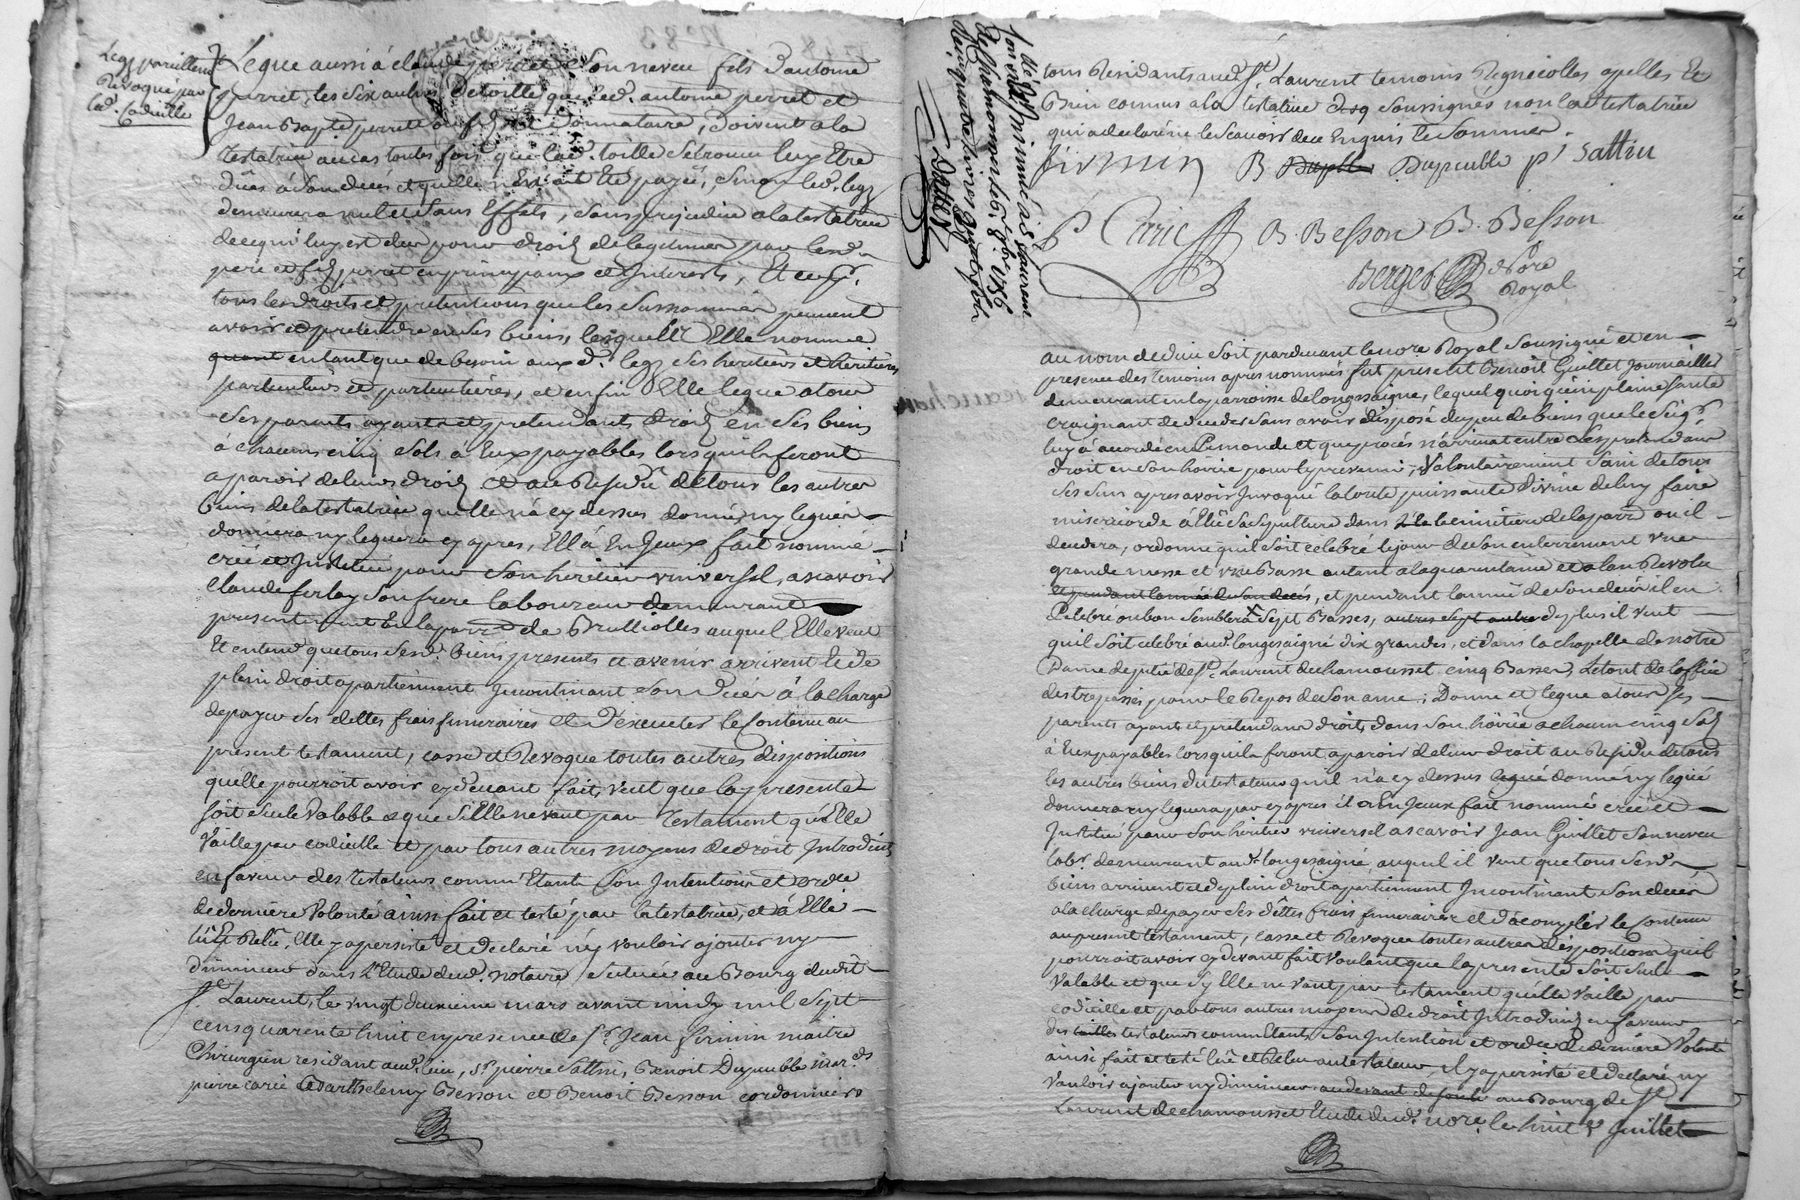 Legs pareillemt
Revoqué par
led. Codicille
Legue aussi à claude perret son neveu fils d'antoine
perret, les six autres de toille que led. antoine perret et
Jean Bapte perret donnataire, doivent a la
testatrice au cas toutes fois que lad. toille se trouve luy etre
dües à son decés et quelle n'en ait eté payée, sinon led. legs
demeurera nul et sans effets, sans prejudice a la testatrice
de ce qui luy est deu pour droits de legitime par lesd.
pere et fils perret en principaux et Interests, Et ce pr.
tous les droits et pretentions que les susnommés peuvent
avoir et pretendre en ses biens, lesquels Elle nomme
quant en tant que de besoin auxd. legs ses heritiers et heritieres
particuliers et particulieres, et en fin Elle legue a tous
ses parents ayants et pretendants droits en ses biens
à chacun cinq sols à Eux payables lors quils feront
aparoir de leurs droits et au Residu de tous les autres
biens de la testatrice quelle n'a cy dessus donné, ny legué
donnera ny leguera cy apres, Elle à En Jceux fait nommé
creé et Institué pour son heritier universel, ascavoir
Claude ferlay son frere laboureur demeurant
presentement En la parr. de Brullioles auquel Elle veut
Et entend que tous sesd. biens presents et avenir arrivent et de
plein droit apartiennent Jncontinant son decés à la charge
de payer ses dettes frais funeraires et d'executer le Contenu au
present testament, casse et Revoque toutes autres dispositions
quelle pourroit avoir cy devant fait, veut que la presente
soit seule valable et que si Elle ne vaut par Testament quelle
vaille par codicille et par tous autres moyens de droit Introduits
en faveur des testateurs comm' Etant son Intention et ordce
de derniere volonté ainsi fait et testé par la testatrice, et à Elle
lû et Relû, Elle y a persisté et declaré n'y vouloir ajouter ny
diminuer dans L'Etude dud. notaire scituée au Bourg dudit
St Laurent, le vingt deuxieme mars avant midy mil sept
cens quarente huit en presence de Sr Jean firmin maitre
Chirurgien residant aud. lieu, Sr pierre Sattin, Benoit Dupeuble mards
pierre carié Barthelemy Besson et Benoit Besson cordonniers
tous Residants aud. St. Laurent temoins Regnicolles apelles Et
Bien connus a la testatrice soussignés non lad. testatrice
qui a declaré ne le scavoir de ce Enquis et sommée.
firmin B Dupeuble pr Sattin
Pr Carié B. Besson B. Besson
Berger Nore Royal
Deschamoussel le 6.
au nom de dieu soit pardevant le nore Royal soussigné et en
presence des temoins apres nommés fut present Benoit Guillet journaillier
demeurant en la parroisse de longessaigne, lequel quoiqu'en plaine santé
craignant de deceder sans avoir disposé du peu de biens que le Seigr
luy à accordé en ce monde et que procés n'arrivat entre les pretendans
droit en son hoirie pour y prevenir, Volontairement Sain de tous
ses sens apres avoir Invoqué la toute puissante divine de luy faire
misericorde à Elû sa sepulture dans le cimitiere de la parr. ou il
decedera, ordonne qu'il soit celebré le jour de son enterrement une
grande messe et une Basse autant a la quarantaine et a l'an Revolu
et pendant l'année de son decés, et pendant lannée de son decés il en
Celebré ou bon semblera sept Basses, autres sept autres de plus il veut
quil soit celebré aud. longessaigne dix grandes, et dans la chapelle de notre
Dame de pitié de St Laurent de chamousset cinq Basses, le tout de loffice
des trepassés pour le Repos de son ame; Donne et legue a tous ses
parents ayants et pretendans droit, dans son hoirie a chacun cinq sols
à Eux payables lorsqu'ils feront aparoir de leur droit au Residu de tous
les autres biens du testateur quil n'a cy dessus legué donné ny legué
donnera ny leguera par cy apres il a En Jceux fait nommé creé et
Institué pour son heritier universel ascavoir Jean Guillet son neveu
labr. demeurant aud. longessaigne auquel il veut que tous sesd.
biens arrivent et de plein droit apartiennent Jncontinant son decés
a la charge de payer ses dêttes frais funeraires et d'acomplir le contenu
au present testament, casse et Revoque toutes autres dispositions quil
pourroit avoir cy devant fait voulant que la presente soit seule
Valable et que sy Elle ne vaut par testament quelle vaille par
codicille et par tous autres moyens de droit Introduits en faveur
des testateurs comme Etant son Intention et ordce de derniere volonté
ainsi fait et testé lû et Relû au testateur, il y a persisté et declaré ny
vouloir ajouter ny diminuer au Bourg de St
Laurent de chamousset Etude dud. nore. le huit Juillet